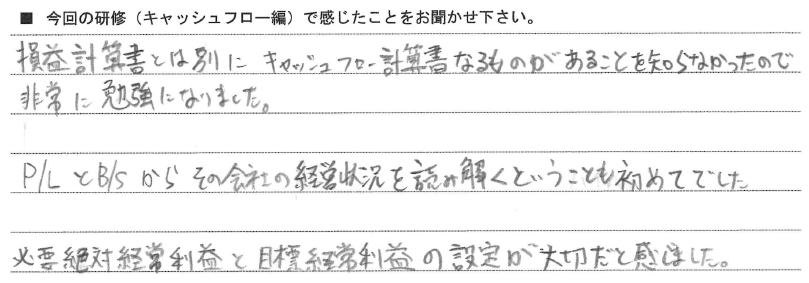 ■ 今回の研修（キャッシュフロー編）で感じたことをお聞かせ下さい。
損益計算書とは別に キャッシュフロー計算書なるものがあることを知らなかったので
非常に勉強になりました。
P/LとB/Sから その会社の経営状況を読み解くということも初めてでした
必要絶対経常利益と目標経常利益の設定が大切だと感じました。